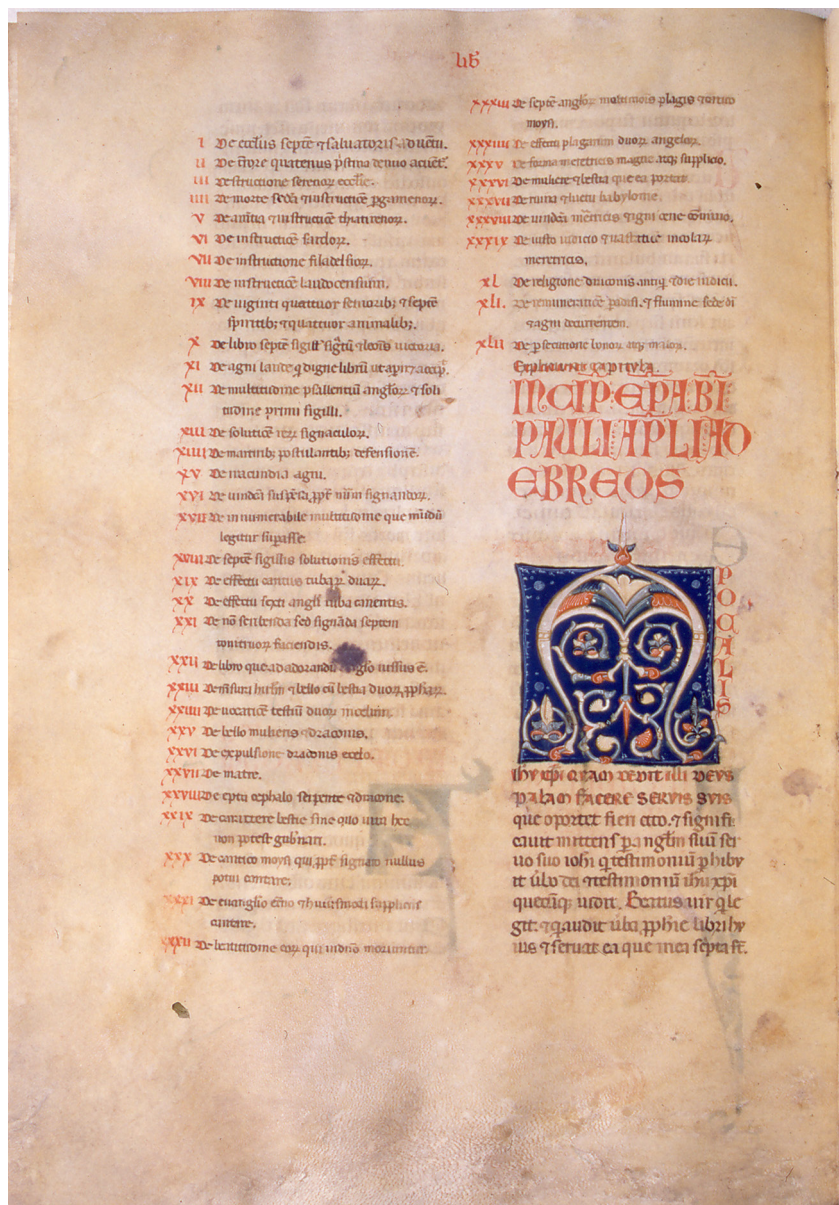 lib
I De eccl'iis septē ⁊ saluatoris aduētu.
II De t̄rore quatenus p'stina denuo
III structione serenor eccl'ie.
IIII De morte ⁊ instructiōe pgamenoꝝ.
V De ⁊ instructiōe thiatirenoꝝ.
VI De instructiōe sardoꝝ.
VII De instructione filadelfioꝝ.
VIII De instructiōe laudocensium.
IX De uiginti quattuor senioribꝫ ⁊ septē
spiritibꝫ ⁊ quattuor animalibꝫ.
X De libro septē sigill' ⁊ leonis uictoria.
XI De agni laude ꝙ digne librū ut apiat accep'.
XII De multitudine psallentium angl'oꝝ ⁊ soli
tudine primi sigilli.
XIII De solutiōe signaculoꝝ.
XIIII De martiribꝫ postulantibꝫ defensionē.
XV De iracundia agni.
XVI De uindicta suspēsa ꝓpt' signandoꝝ.
XVII De innumerabile multitudine que
legitur supasse.
XVIII De septē sigillis solutionis effectu.
XIX De effectu cantus tubaꝝ duaꝝ.
XX De effectu sexti angl'i tuba canentis.
XXI De nō scribenda sed signāda septem
tonitruoꝝ faciendis.
XXII De libro que ad adorandū anglo iussus ē.
XXIII De mēsura ⁊ bello cū bestia duoꝝ ꝓphaꝝ.
XXIIII De uocatiōe testiū duoꝝ in celum.
XXV De bello mulieris ⁊ draconis.
XXVI De expulsione draconis e celo.
XXVII De matre.
XXVIII De cephalo serpente ⁊ dracone.
XXIX De carattere bestie sine quo uita hec
non potest gub'nari.
XXX De cantico moysi qui ꝓpt' signato nullus
potui cantare.
XXXI De euanglio et'no ⁊ supplicus
cantare.
XXXII De beatitudine eoꝝ qui in dn̄o moriuntur.
XXXIII De septē angl'oꝝ plagis ⁊
moysi.
XXXIIII De effectu plagarum duoꝝ angeloꝝ.
XXXV De forma meretricis magne atqꝫ supplicio.
XXXVI De muliere ⁊ bestia que ea portat.
XXXVII De ruina ⁊ luctu babylonie.
XXXVIII De uindicta m̄etricis ⁊ agni cene
XXXIX De iusto iudicio ⁊
meretricis.
XL De religione draconis antiq' ⁊ die iudicii.
XLI. De remuneratiōe padisi. ⁊ flumine sede dī
⁊ agni decurrentem.
XLII De psecutione bonoꝝ atqꝫ maloꝝ.
Expliciunt capitula
INCIP· EPA· BI
PAULI APLI AD
EBREOS
APOCALIS
ihu xpi QUAM DEDIT ILLI DEUS
PALAM FACERE SERVIS SUIS
que oportet fieri cito. ⁊ signifi
cauit mittens p anglm suū ser
uo suo iohi q testimoniū phibu
it ūbo dei ⁊ testimoniū ihu xpi
quecūqꝫ uidit. Beatus uir q le
git: ⁊ q audit ūba ꝓphie libri hu
ius ⁊ seruat ea que in ea scpta st̄.